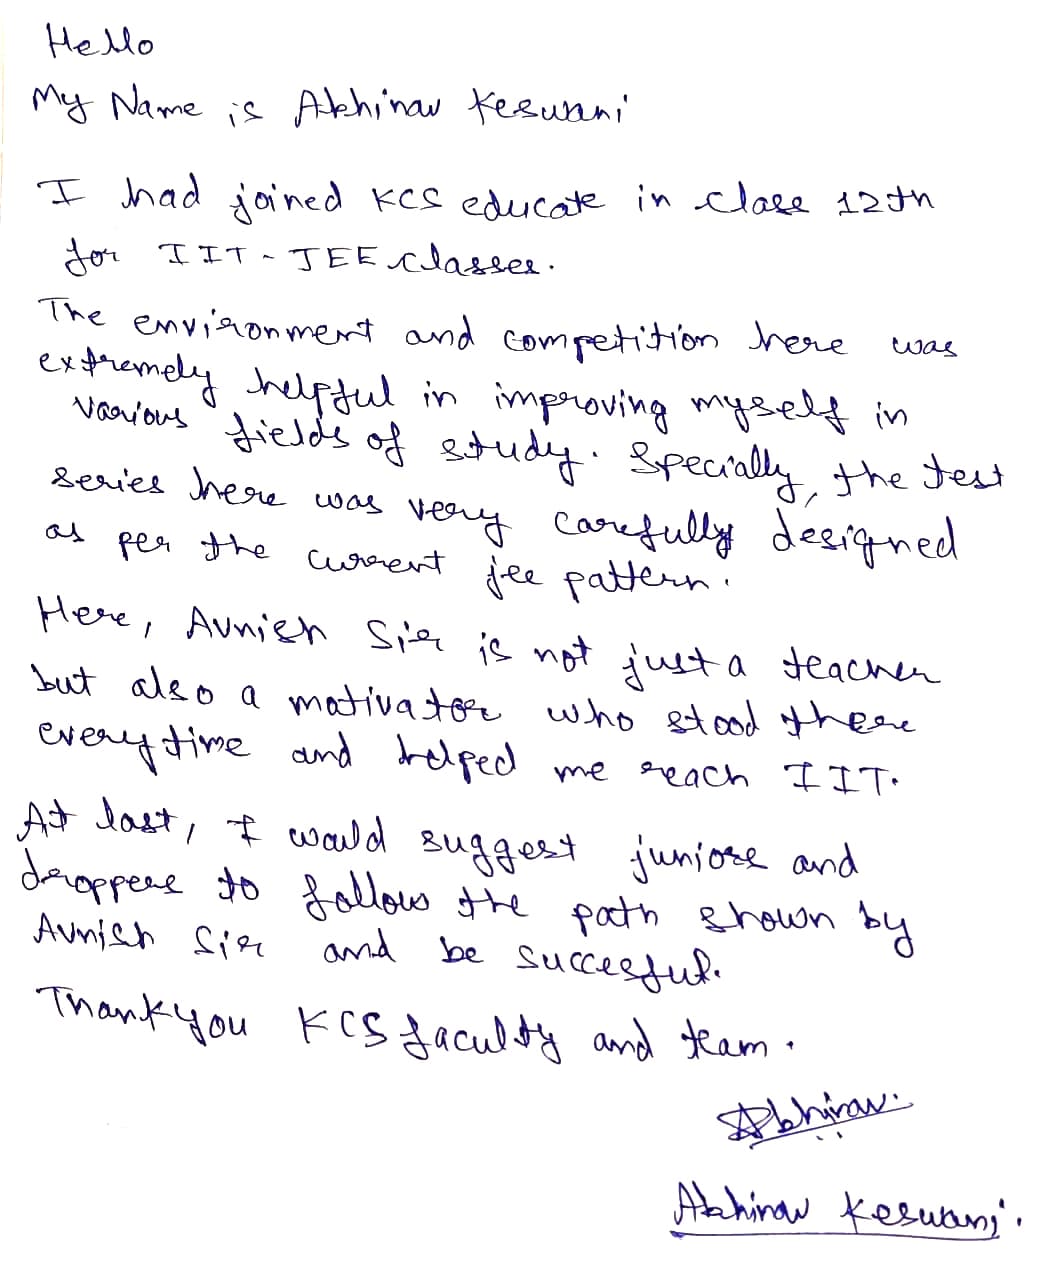 Hello
My Name is Abhinav Keswani
I had joined KCS educate in class 12th
for IIT-JEE classes.
The environment and competition here was
extremely helpful in improving myself in
various fields of study. Specially, the test
series here was very carefully designed
as per the current jee pattern.
Here, Avnish Sir is not just a teacher
but also a motivator who stood there
everytime and helped me reach IIT.
At last, I would suggest juniors and
droppers to follow the path shown by
Avnish Sir and be succesful.
Thankyou KCS faculty and team.
Abhinav.
Abhinav Keswani.